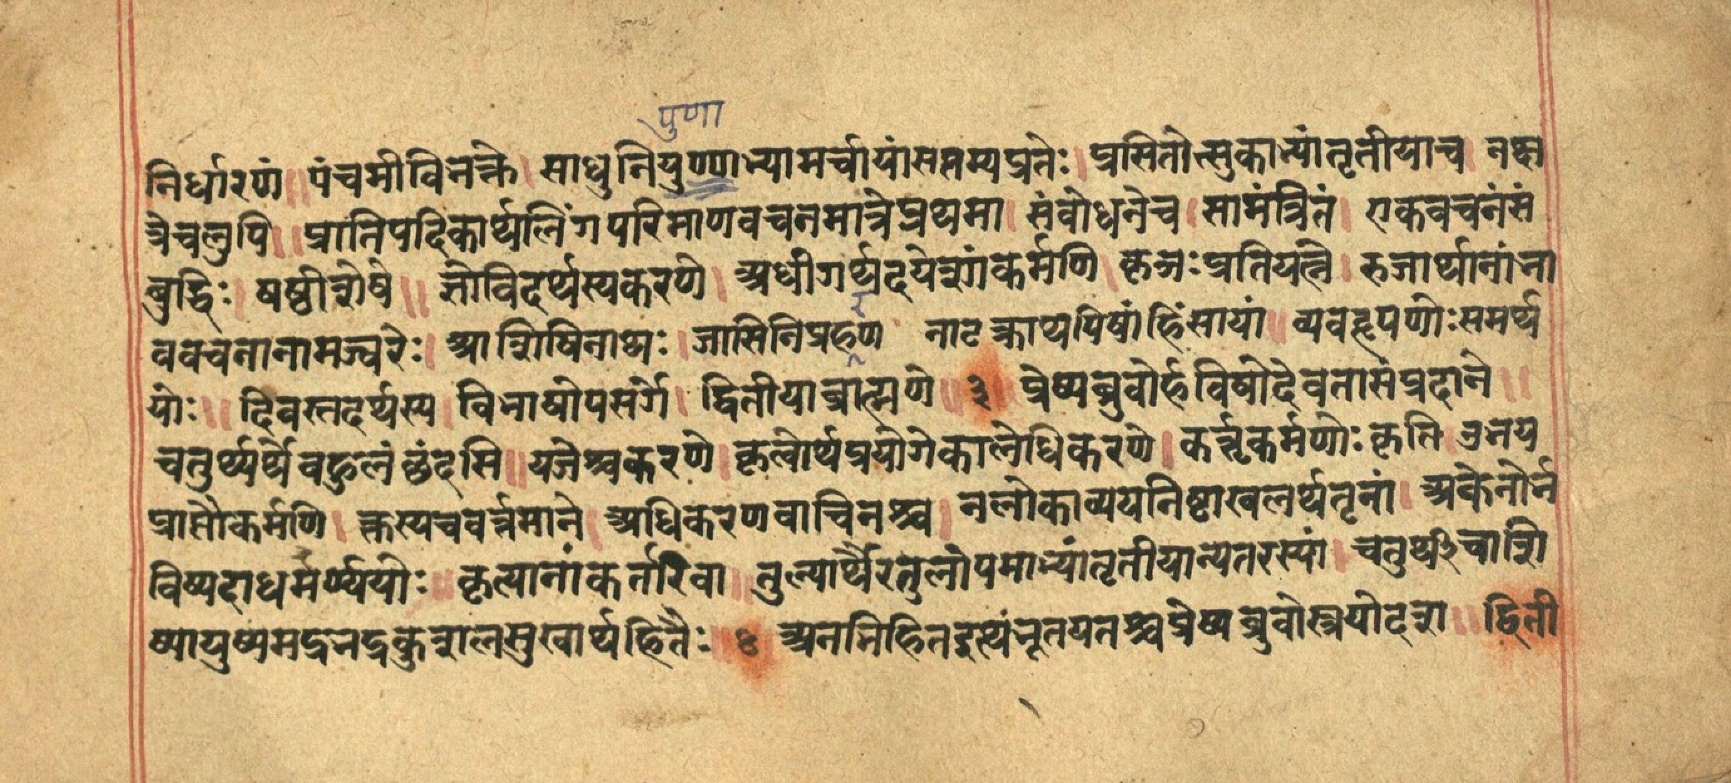 पुणा
निर्धारणं ॥ पंचमीविभक्ते । साधुनियुण्णाभ्यामर्चायांसप्तम्यप्रतेः । प्रसितोत्सुकाभ्यांतृतीयाच । नक्ष
त्रेचलुपि ॥ प्रातिपदिकार्थलिंगपरिमाणवचनमात्रेप्रथमा । संबोधनेच । सामंत्रितं । एकवचनंसं
बुद्धिः । षष्ठीशेषे ॥ ज्ञोविदर्थस्यकरणे । अधीगर्थदयेशांकर्मणि । कृञः प्रतियत्ने । रुजार्थानांभा
ववचनानामज्वरेः । आशिषिनाथः । जासिनिप्रहण नाटक्राथपिषांहिंसायां ॥ व्यवहृपणोः समर्थ
योः ॥ दिवस्तदर्थस्य । विभाषोपसर्गे । द्वितीयाब्राह्मणे ॥ ३ प्रेष्यब्रुवोर्हविषोदेवतासंप्रदाने ॥
चतुर्थ्यर्थेबहुलंछंदसि ॥ यजेश्चकरणे । कृत्वोर्थप्रयोगेकालेधिकरणे । कर्त्तृकर्मणोः कृति । उभय
प्राप्तौकर्मणि । क्तस्यचवर्त्तमाने । अधिकरणवाचिनश्च । नलोकाव्ययनिष्ठाखलर्थतृनां । अकेनोर्भ
विष्यदाधमर्ण्ययोः ॥ कृत्यानांकर्तरिवा ॥ तुल्यार्थैरतुलोपमाभ्यांतृतीयान्यतरस्यां । चतुर्थीचाशि
ष्यायुष्यमद्रभद्रकुशलसुखार्थहितैः ॥ ४ अनभिहितइत्थंभूतयतश्चप्रेष्यब्रुवोस्त्रयोदश ॥ द्विती